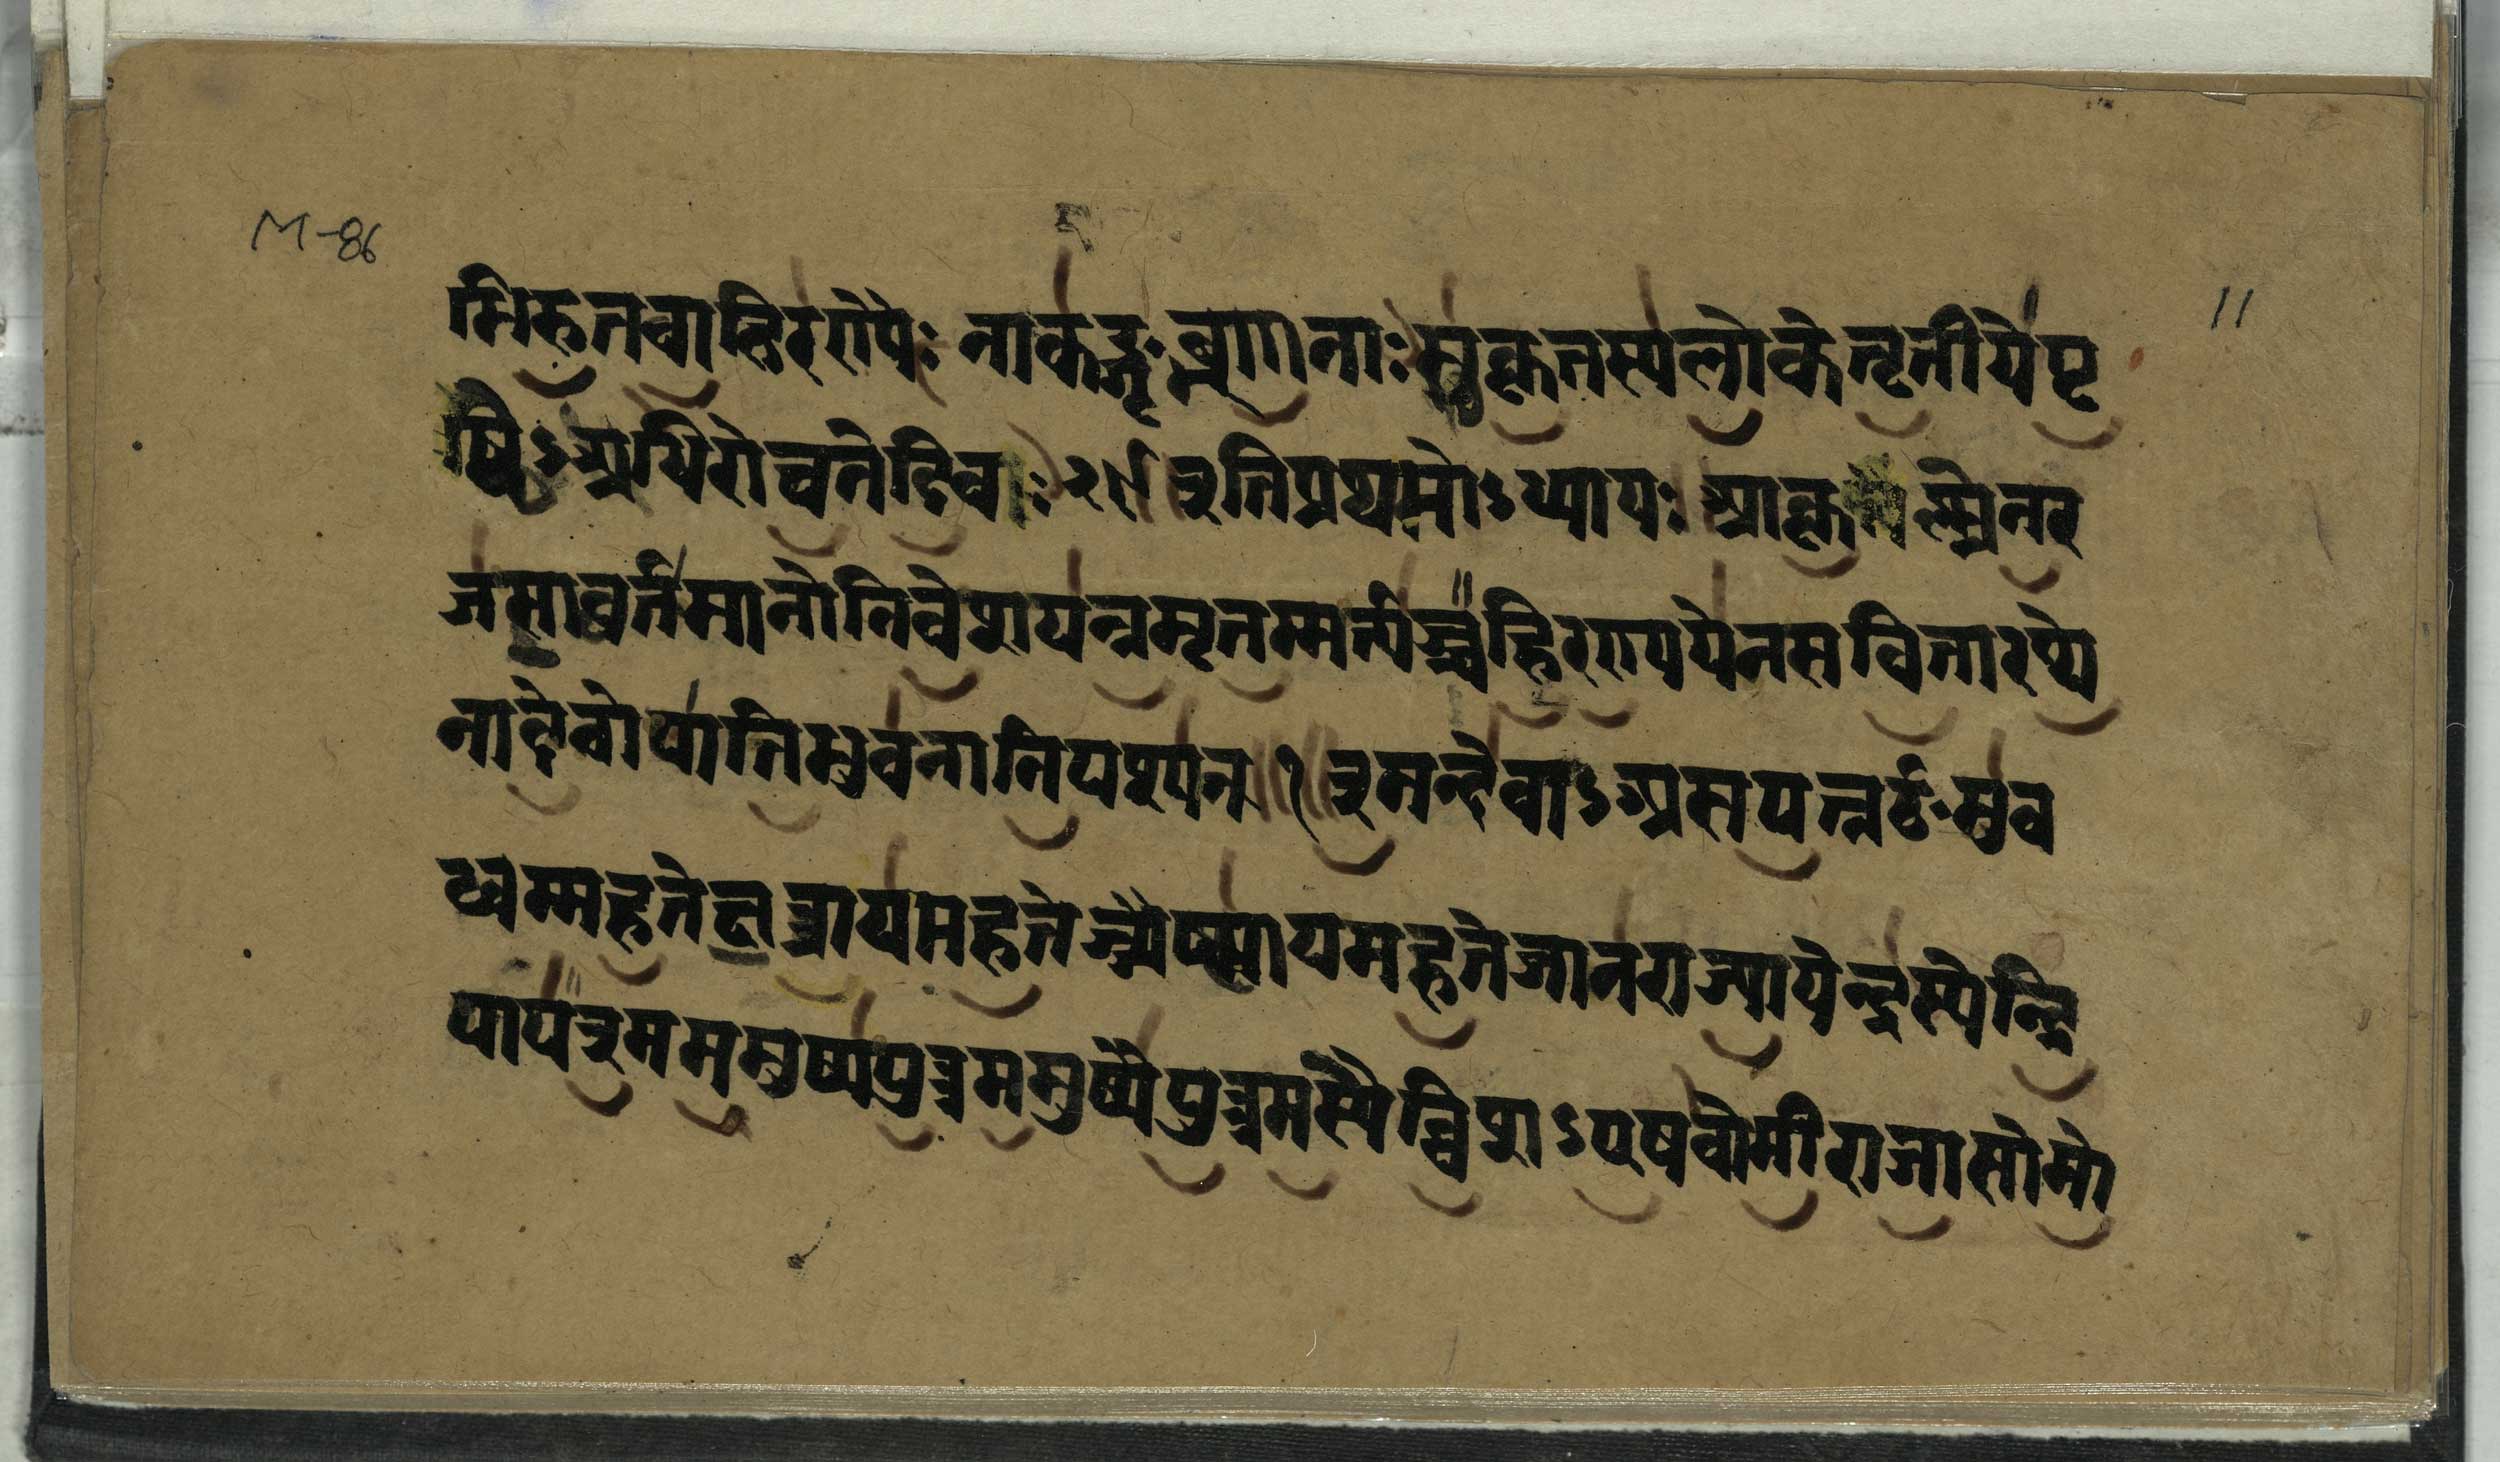 M-86
11
भिरुतवाहिरण्यैः नाकङ्गृब्भ्णानाः सुकृतस्यलोकेतृतीयेपृ
ष्ठेऽअधिरोचनेदिवः २९ इतिप्रथमोऽध्यायः आकृष्णेनर
जसावर्तमानोनिवेशयन्नमृतम्मर्त्यञ्चहिरण्ययेनसवितारथे
नादेवोयातिभुवनानिपश्यन् १ इमन्देवाऽअसपत्नर्ठ०सुव
ध्वम्महतेक्षत्रायमहतेज्यैष्ठ्यायमहतेजानराज्यायेन्द्रस्येन्द्रि
यायइमममुष्यपुत्रममुष्यैपुत्रमस्यैव्विशऽएषवोमीराजासोमो